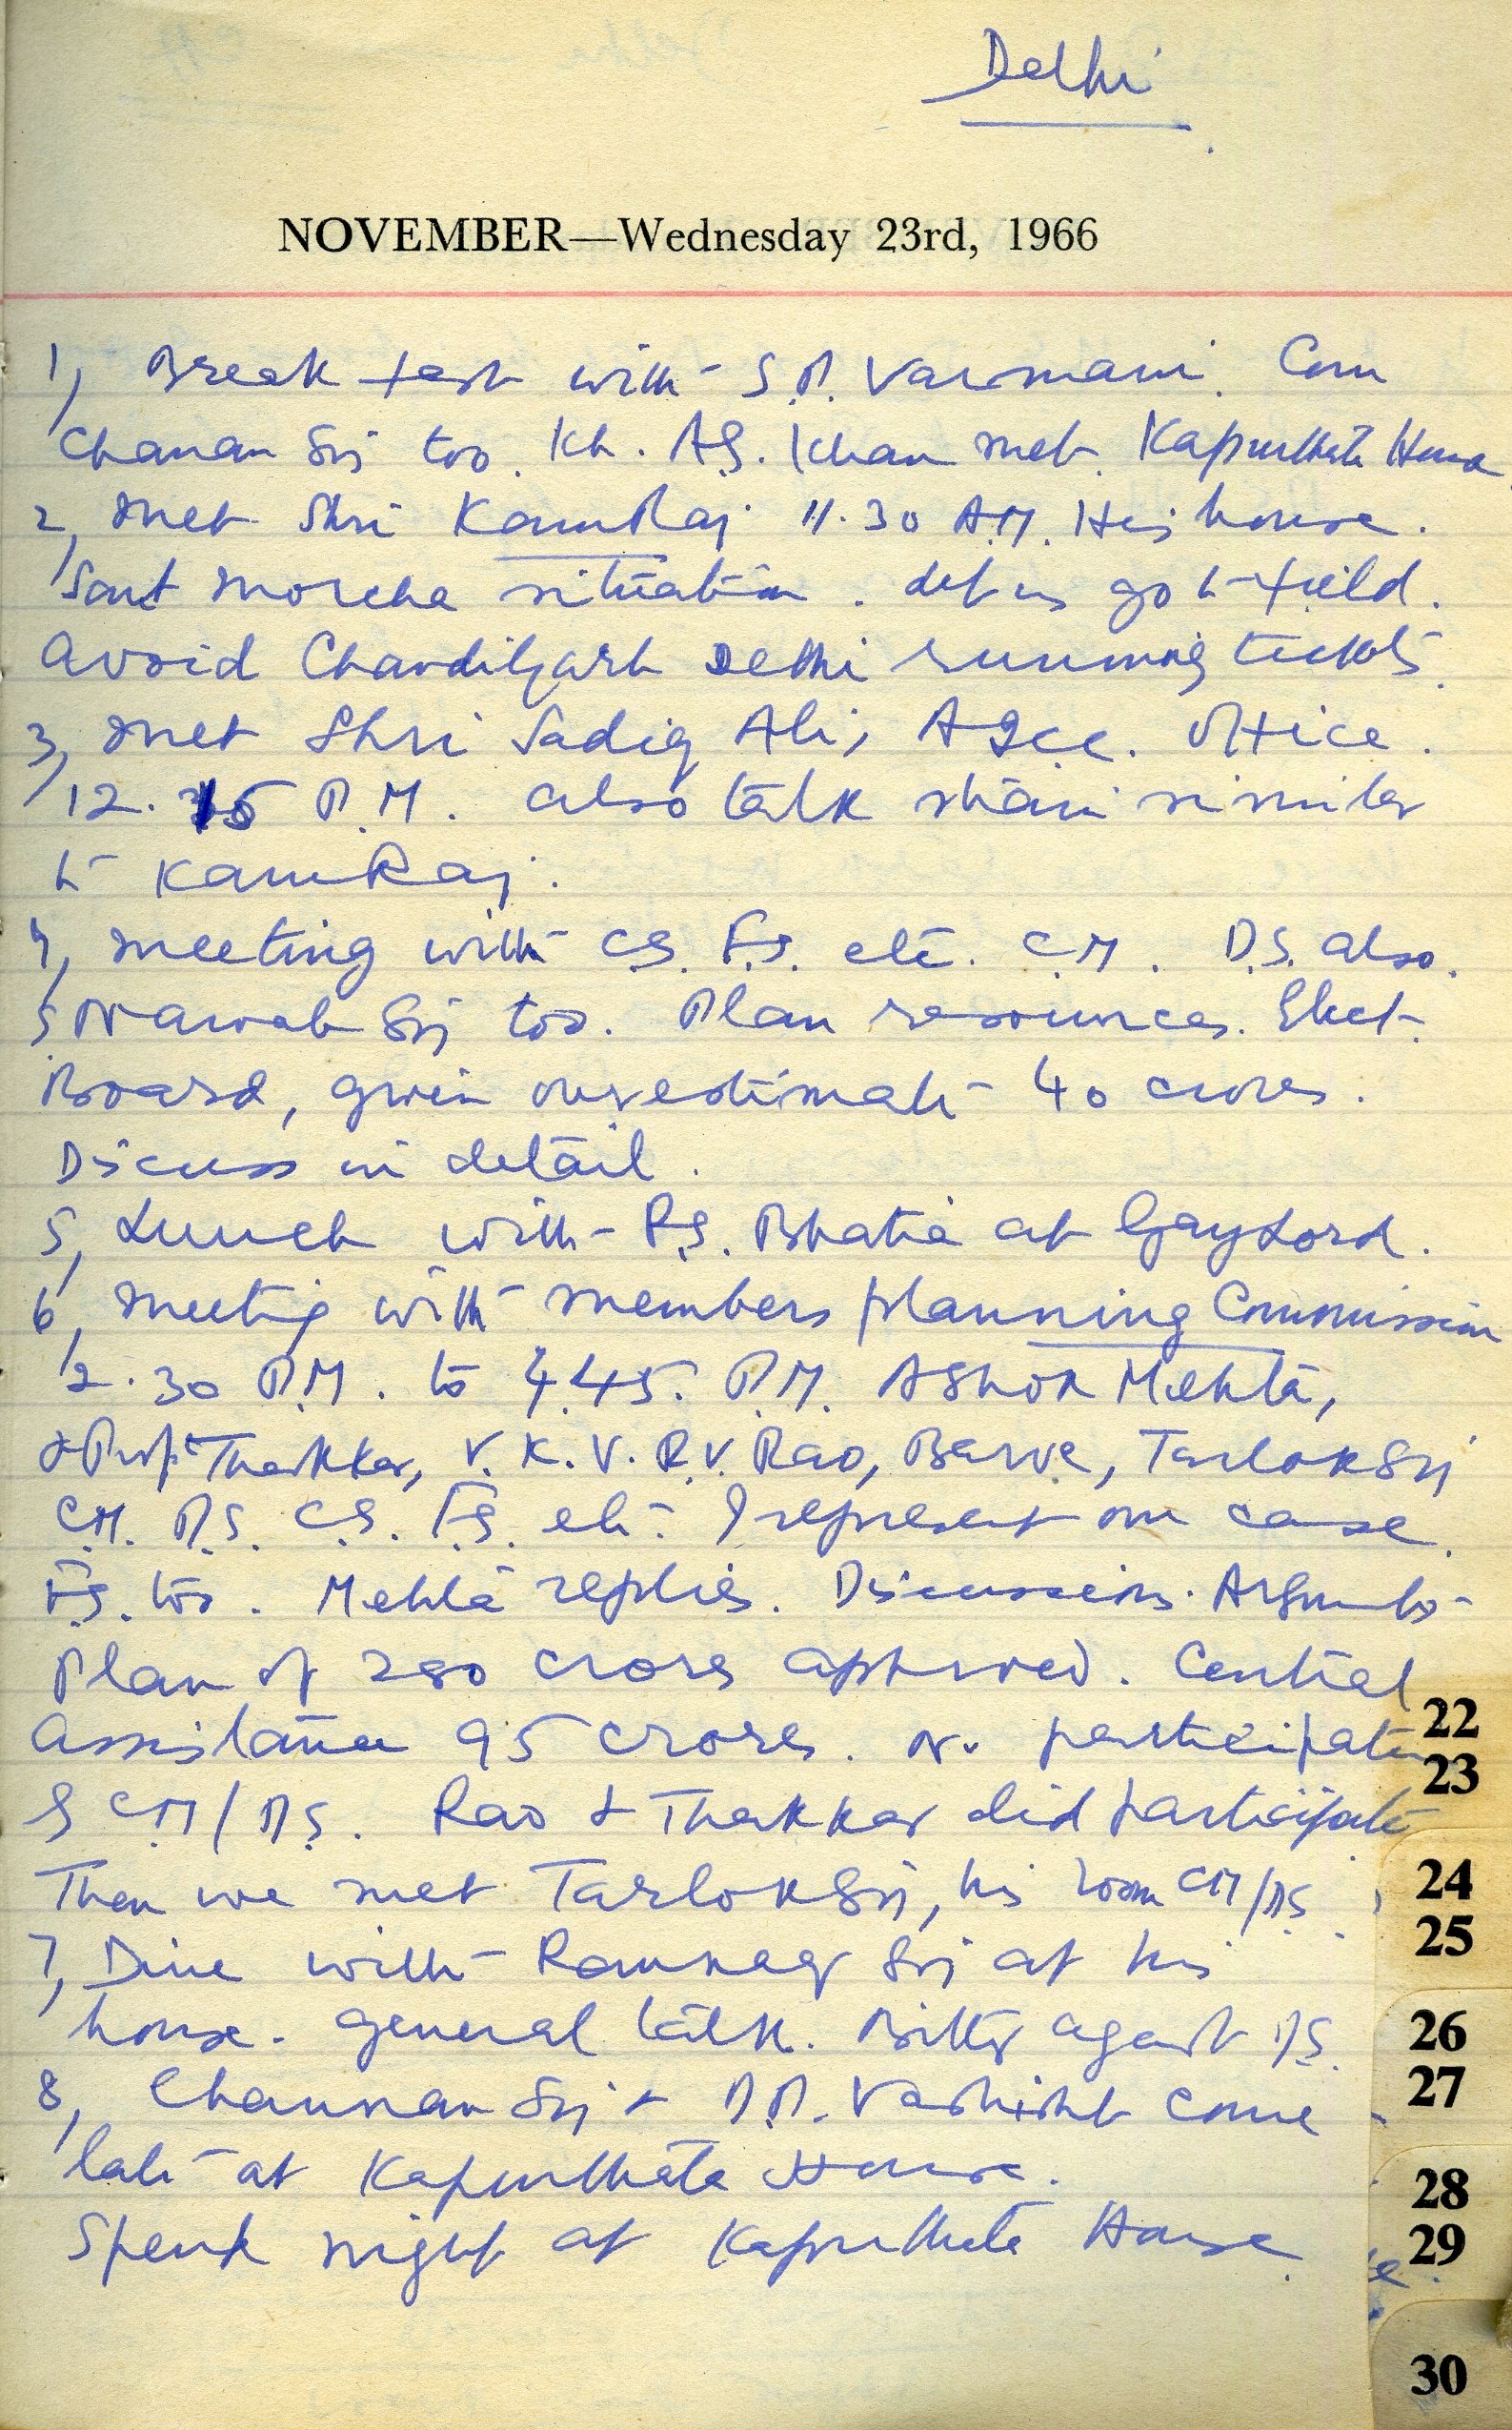 Delhi
NOVEMBER—Wednesday 23rd, 1966
1, Break fast with S.P. Varmani. Com
Chanan Sij too. Kh. A.S. Khan met. Kapurthala House
2, Met Shri KamRaj 11.30 A.M. His house.
Sant Morcha situation. Let us go to field.
Avoid Chandigarh Delhi running tickets.
3, Met Shri Sadiq Ali, AICC. Office.
12.15 P.M. also talk main similar
to KamRaj.
4, Meeting with C.S. F.S. etc. C.M. D.S. also.
Nawab Sij too. Plan resources. Elect.
Board, given overestimate 40 crores.
Discuss in detail.
5, Lunch with P.S. Bhatia at Gaylord.
6, Meeting with members planning Commission
2.30 P.M. to 4.45. P.M. Ashok Mehta,
& Prof. Thakkar, V.K.V.R.V. Rao, Barve, Tarlok Sij
C.M. P.S. C.S. F.S. etc. I represent our case.
F.S. too. Mehta replies. Discussions. Arguments
Plan of 280 crores approved. Central
Assistance 95 crores. No participation
CM/P.S. Rao & Thakkar did participate
Then we met Tarlok Sij, his room CM/P.S.
7, Dine with Ramnag Sij at his
house. General talk. Bitter against P.S.
8, Channan Sij & P.P. Vashisht come
late at Kapurthala House.
Spent night at Kapurthala House.
22
23
24
25
26
27
28
29
30